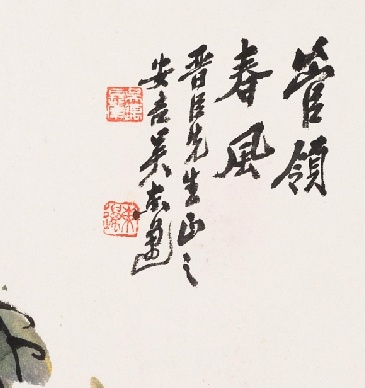 管領
春風
晋臣先生正之
安吉吴东邁